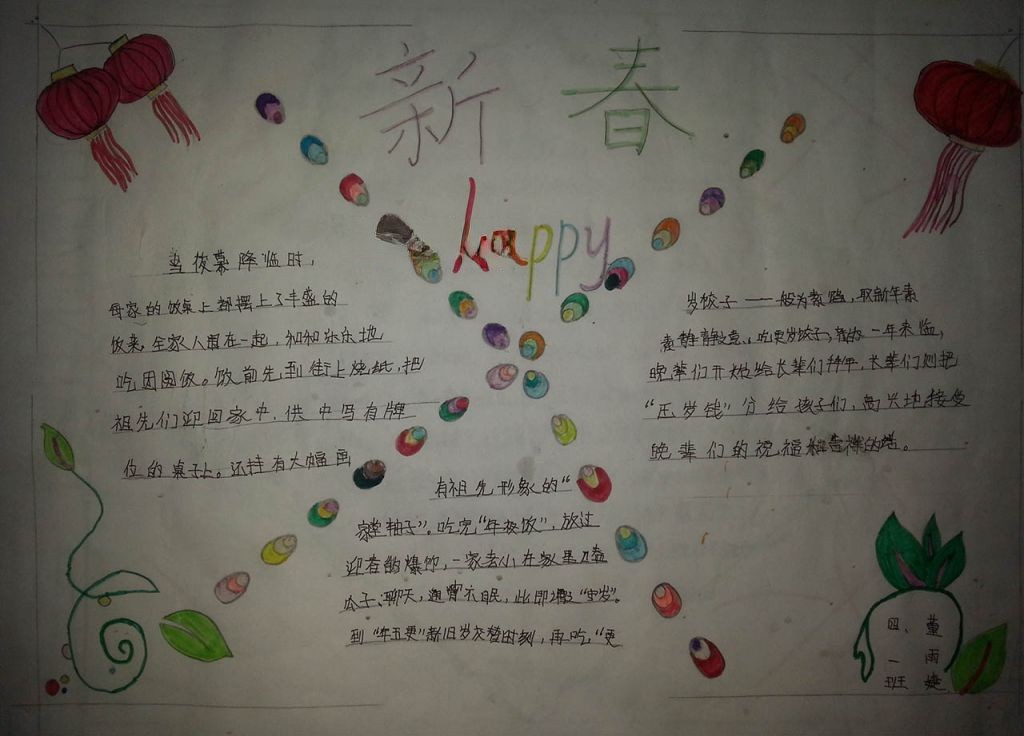 新春
happy
当夜幕降临时，
母家的饭桌上都摆上了丰盛的
饭来，全家人围在一起，和和乐乐地
吃团圆饭。饭前先到街上烧纸，把
祖先们迎回家中，供中写有牌
位的桌子上。还挂有大幅画
有祖先形象的“
家堂轴子”。吃完“年夜饭”，放过
迎春的爆竹，一家老小在家里嗑
瓜子、聊天，通宵不眠，此即“守岁”。
到“年五更”新旧岁交替时刻，再吃“更
岁饺子一般为素馅，取新年素
素静静之意。吃更岁饺子，新的一年来临，
晚辈们开始给长辈们拜年，长辈们则把
“压岁钱”分给孩子们，高兴地接受
晚辈们的祝福
四、一班
董雨婕